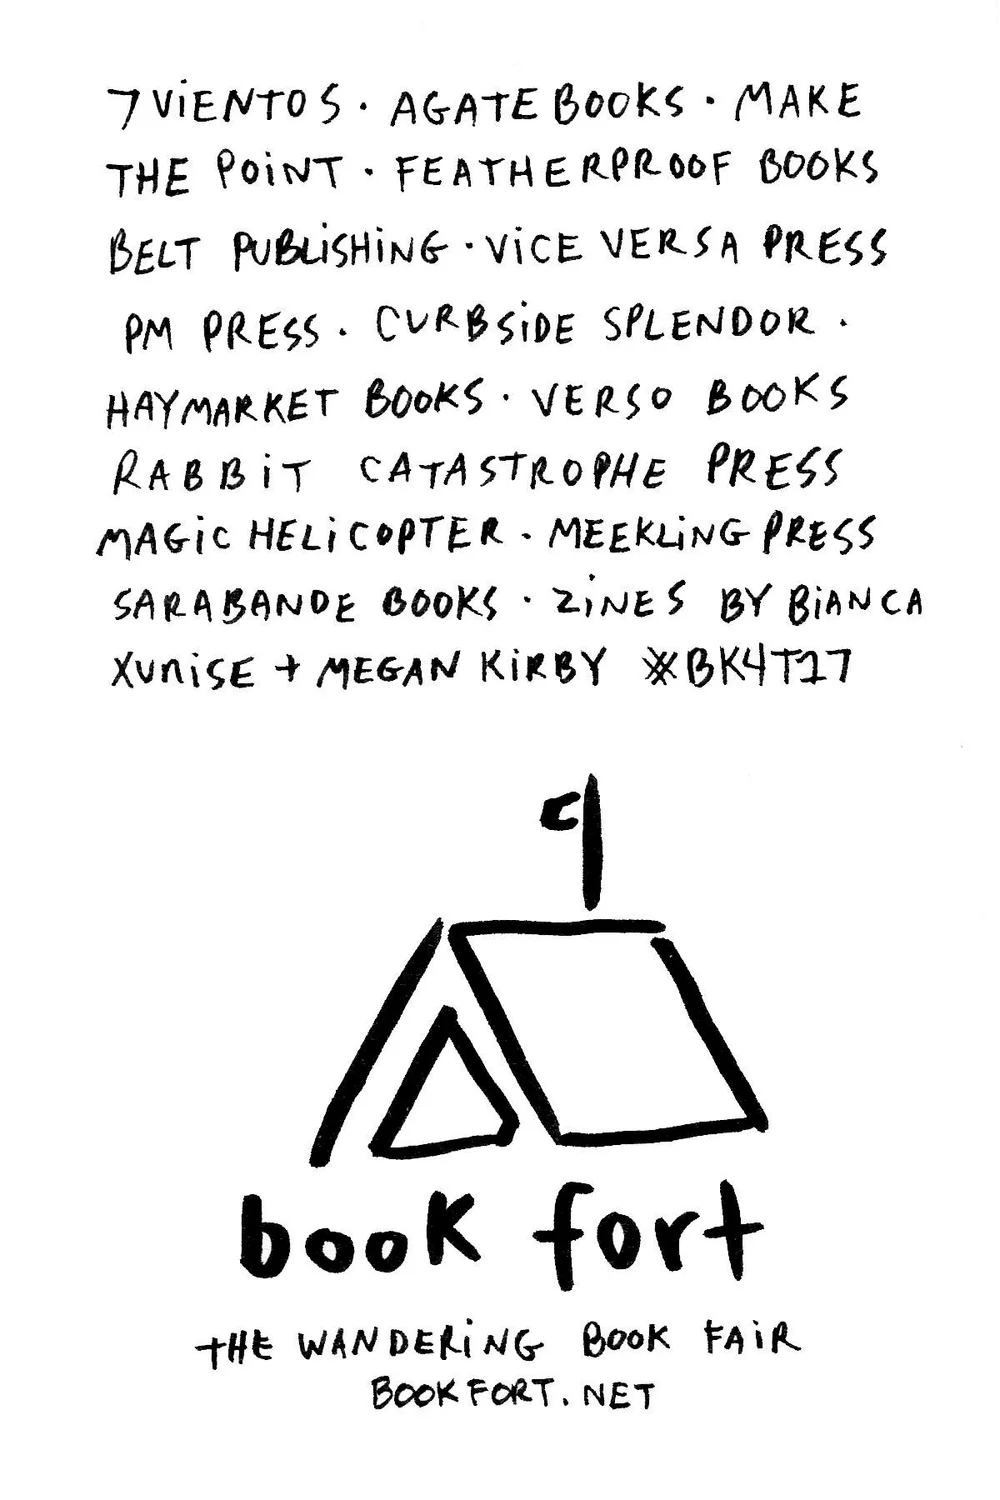 7 ViENTOS · AGATE BOOKS · MAKE
THE POiNT · FEATHERPROOF BOOKS
BELT PUBLiSHiNG · ViCE VERSA PRESS
PM PRESS · CURBSiDE SPLENDOR ·
HAYMARKET BOOKS · VERSO BOOKS
RABBiT CATASTROPHE PRESS
MAGiC HELiCOPTER · MEEKLiNG PRESS
SARABANDE BOOKS · ZiNES BY BiANCA
XUniSE + MEGAN KiRBY #BK4T17
book fort
tHE WANDERiNG BOOK FAiR
BOOKFORT.NET